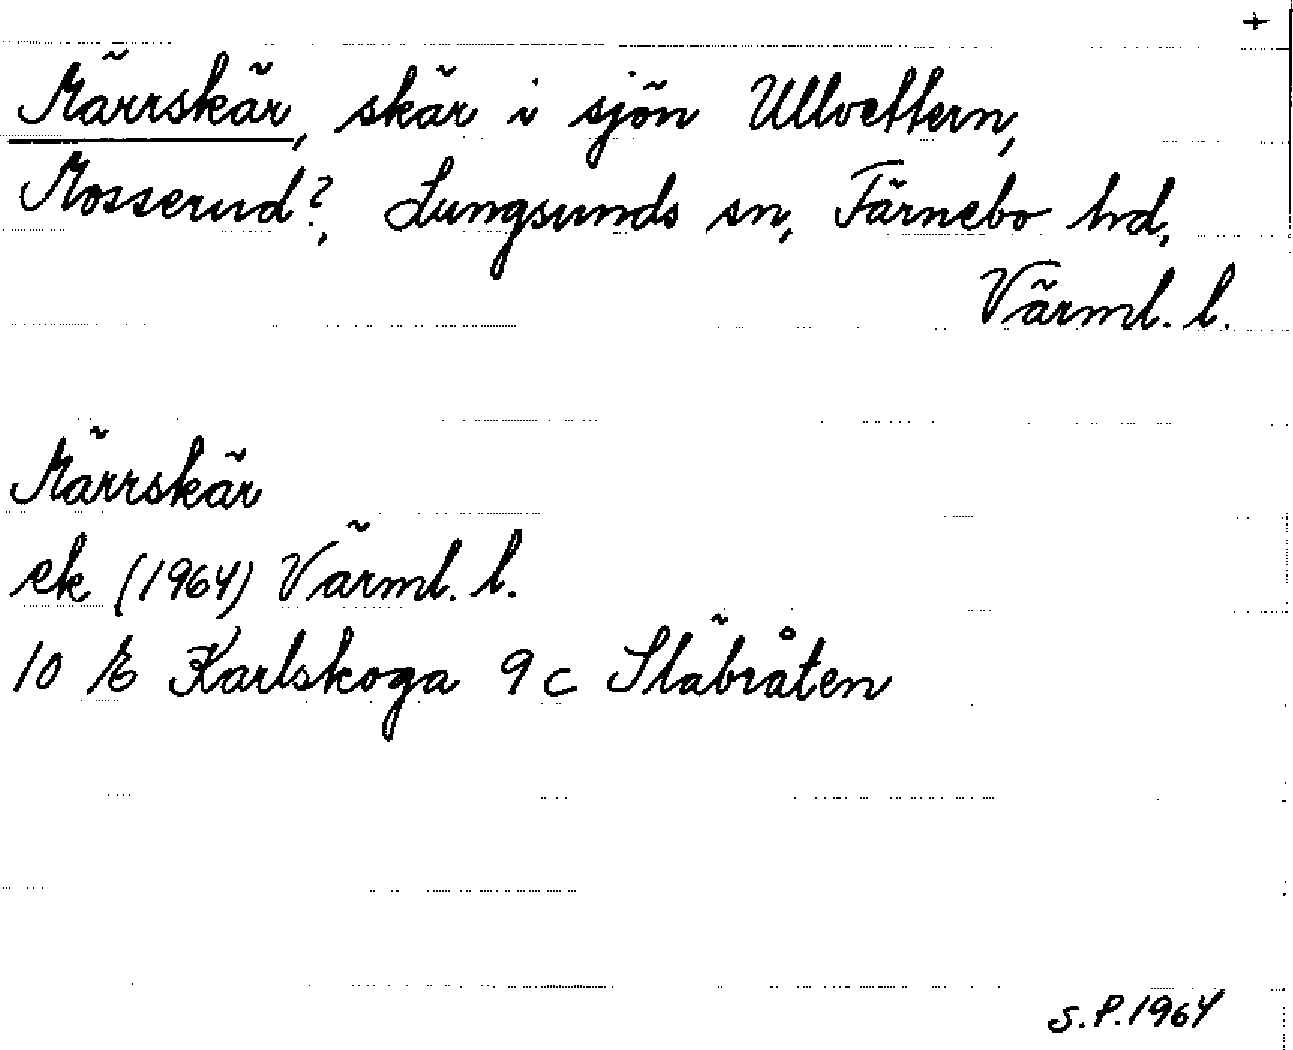 +
Märrskär, skär i sjön Ullvettern,
Mosserud?, Lungsunds sn, Färnebo hd,
Värml. l.
Märrskär
ek (1964) Värml. l.
10 E Karlskoga 9 c Släbråten
S.P. 1964